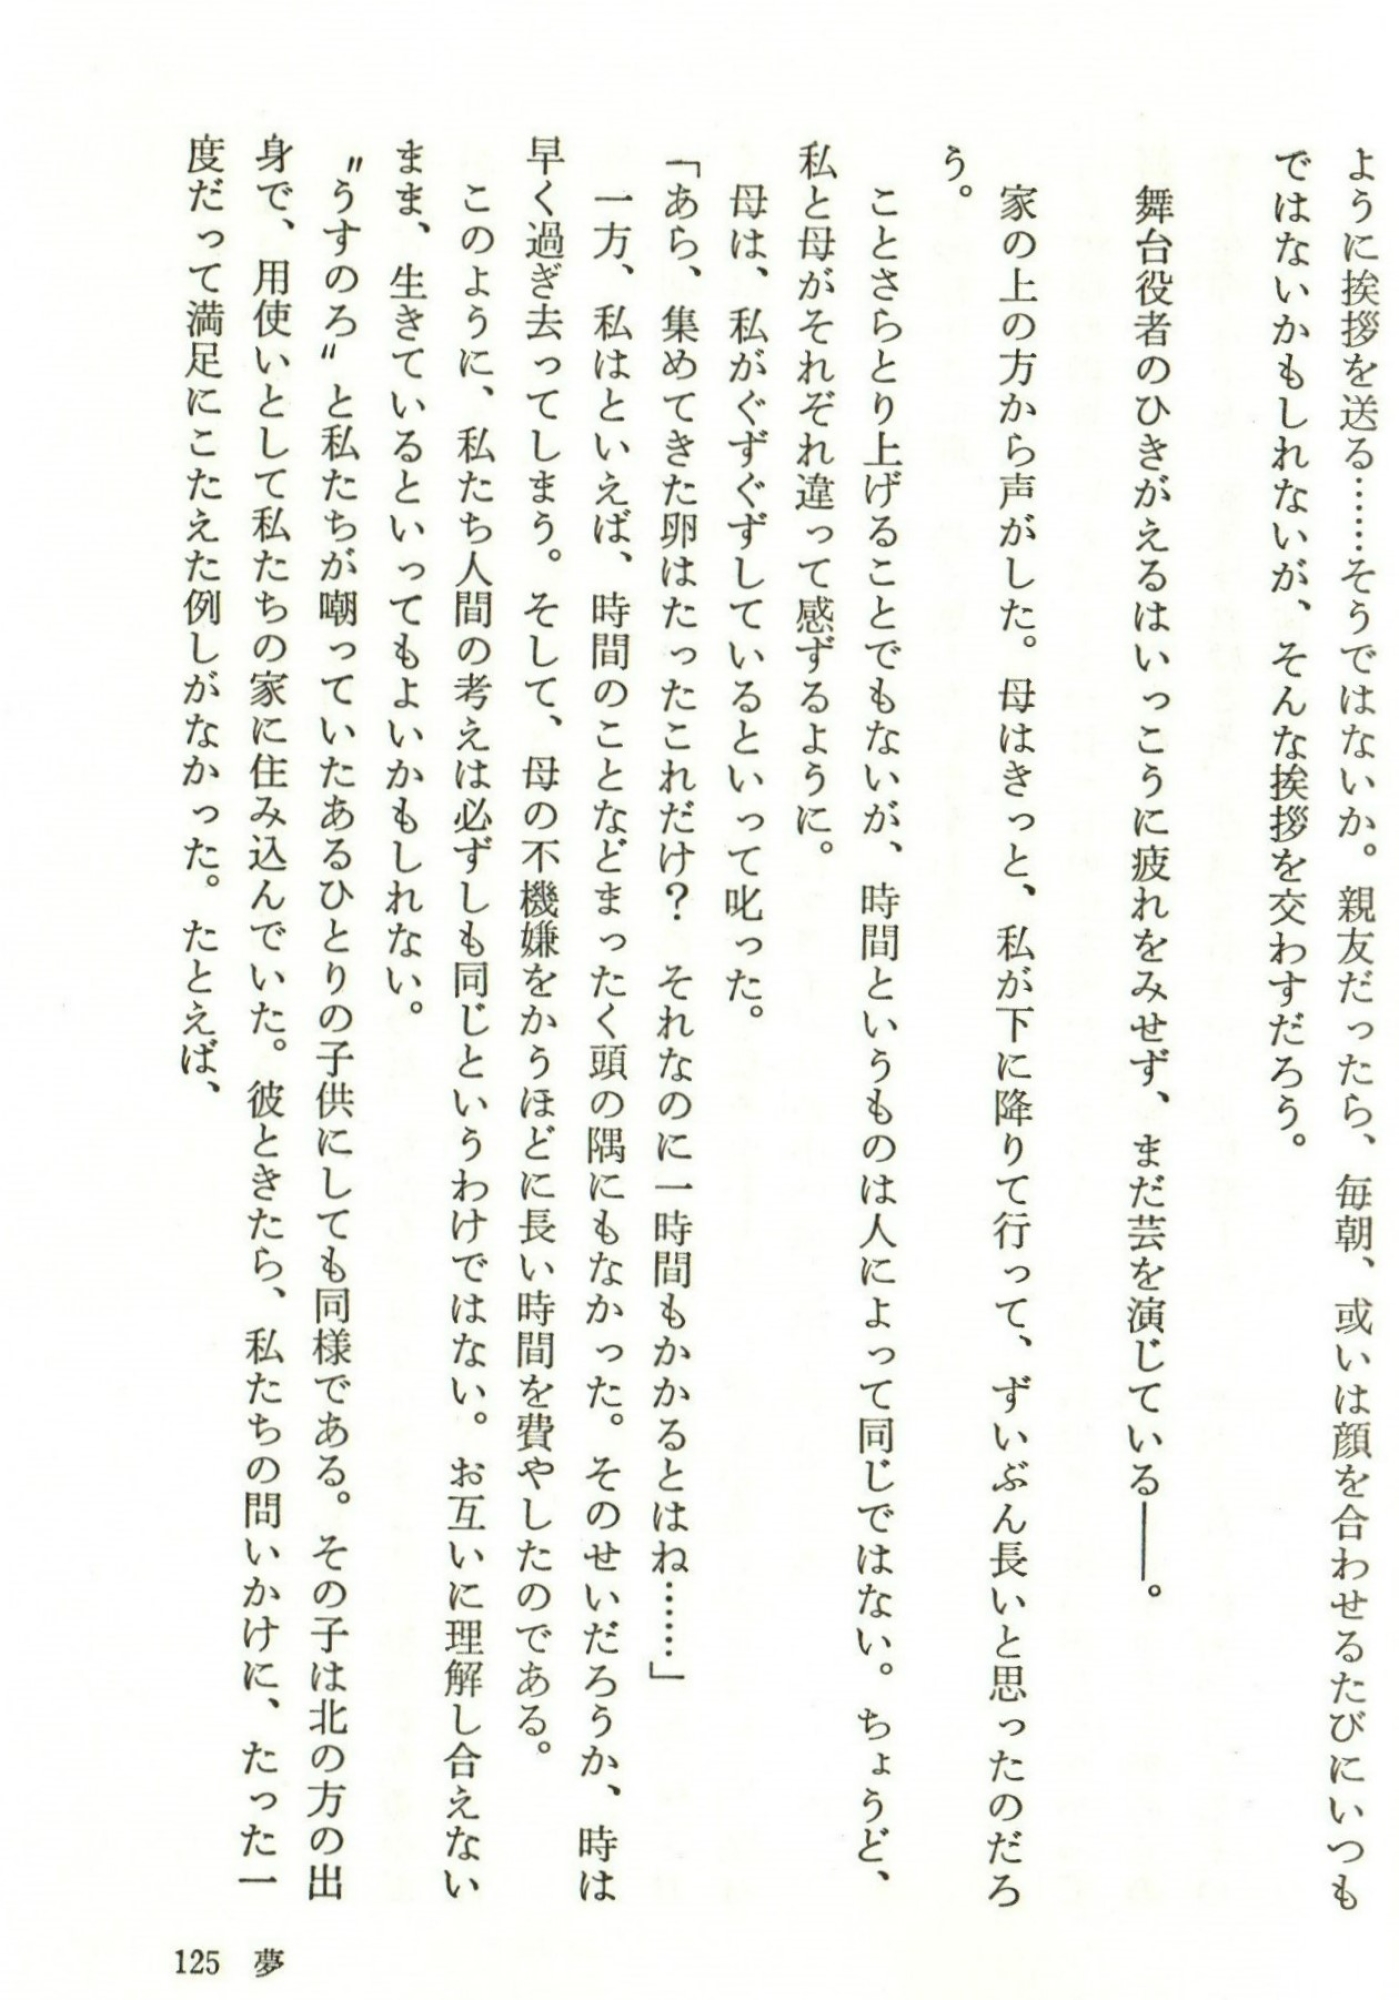 ように挨拶を送る……そうではないか。親友だったら、毎朝、或いは顔を合わせるたびにいつも
ではないかもしれないが、そんな挨拶を交わすだろう。
舞台役者のひきがえるはいっこうに疲れをみせず、まだ芸を演じている――。
家の上の方から声がした。母はきっと、私が下に降りて行って、ずいぶん長いと思ったのだろ
う。
ことさらとり上げることでもないが、時間というものは人によって同じではない。ちょうど、
私と母がそれぞれ違って感ずるように。
母は、私がぐずぐずしているといって叱った。
「あら、集めてきた卵はたったこれだけ？　それなのに一時間もかかるとはね……」
一方、私はといえば、時間のことなどまったく頭の隅にもなかった。そのせいだろうか、時は
早く過ぎ去ってしまう。そして、母の不機嫌をかうほどに長い時間を費やしたのである。
このように、私たち人間の考えは必ずしも同じというわけではない。お互いに理解し合えない
まま、生きているといってもよいかもしれない。
〝うすのろ〟と私たちが嘲っていたあるひとりの子供にしても同様である。その子は北の方の出
身で、用使いとして私たちの家に住み込んでいた。彼ときたら、私たちの問いかけに、たった一
度だって満足にこたえた例しがなかった。たとえば、
125　夢